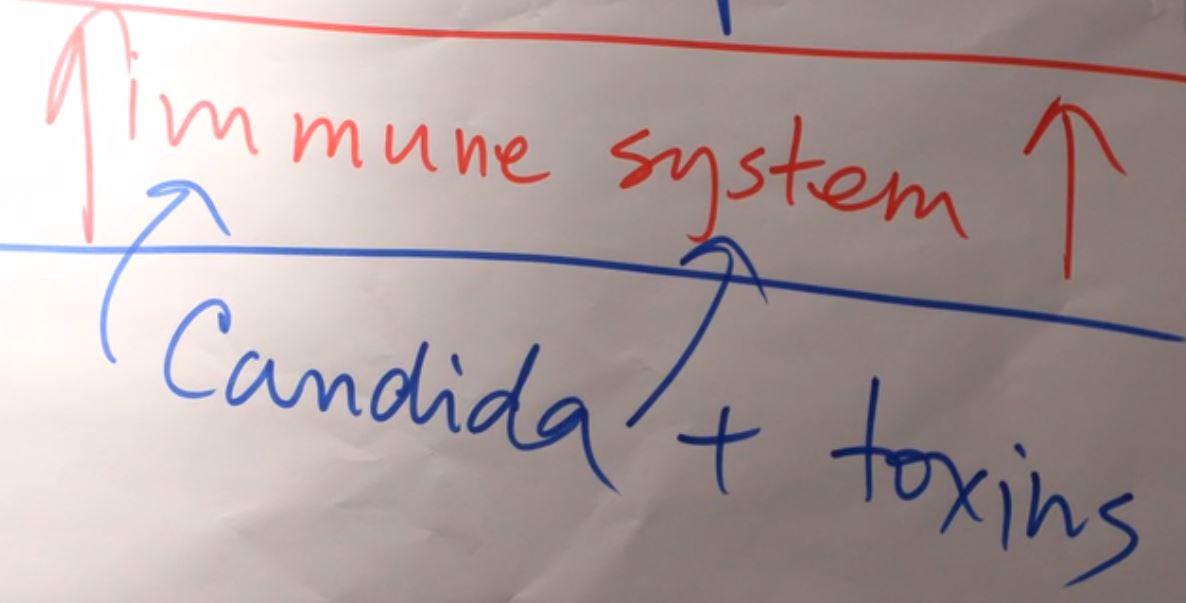 immune system
Candida + toxins